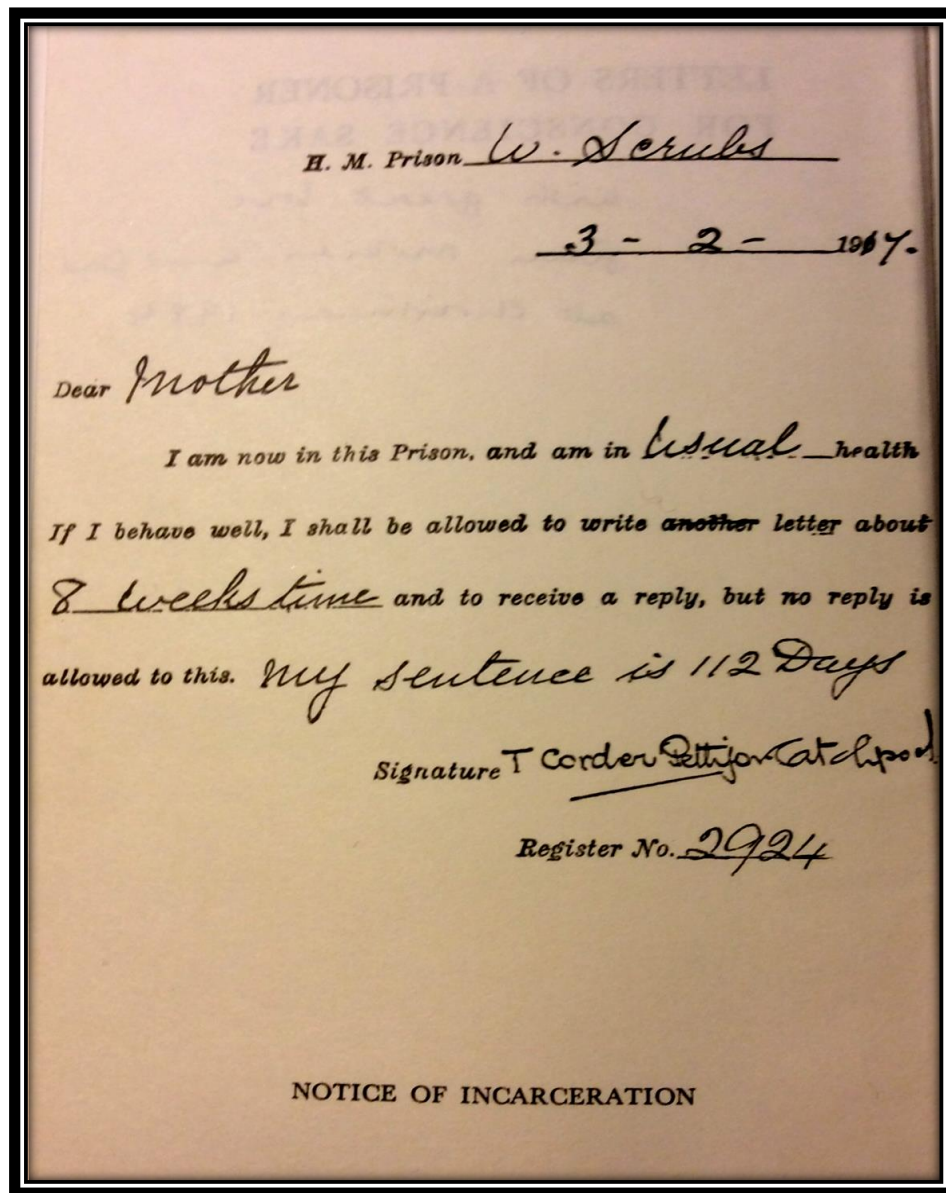 H. M. Prison W. Scrubs
3 - 2 - 1917.
Dear Mother
I am now in this Prison, and am in Usual health
If I behave well, I shall be allowed to write another letter about
8 weeks time and to receive a reply, but no reply is
allowed to this. My sentence is 112 Days
Signature T Corder Pettifor Catchpool
Register No. 2924
NOTICE OF INCARCERATION